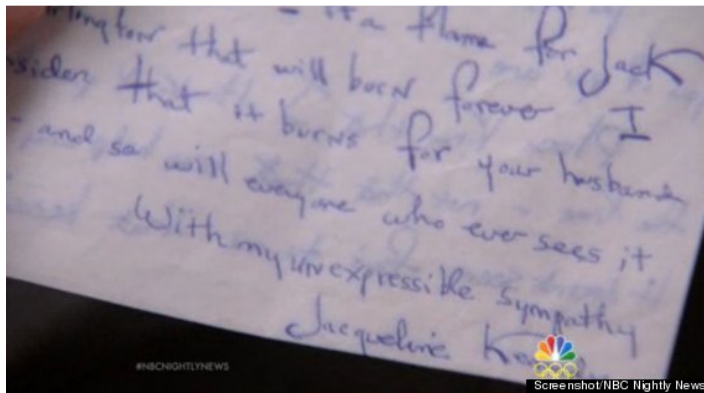 a flame for Jack
that will burn forever I
that it burns for your husband
- and so will everyone who ever sees it
With my inexpressible sympathy
Jacqueline
#NBCNIGHTLYNEWS
Screenshot/NBC Nightly News